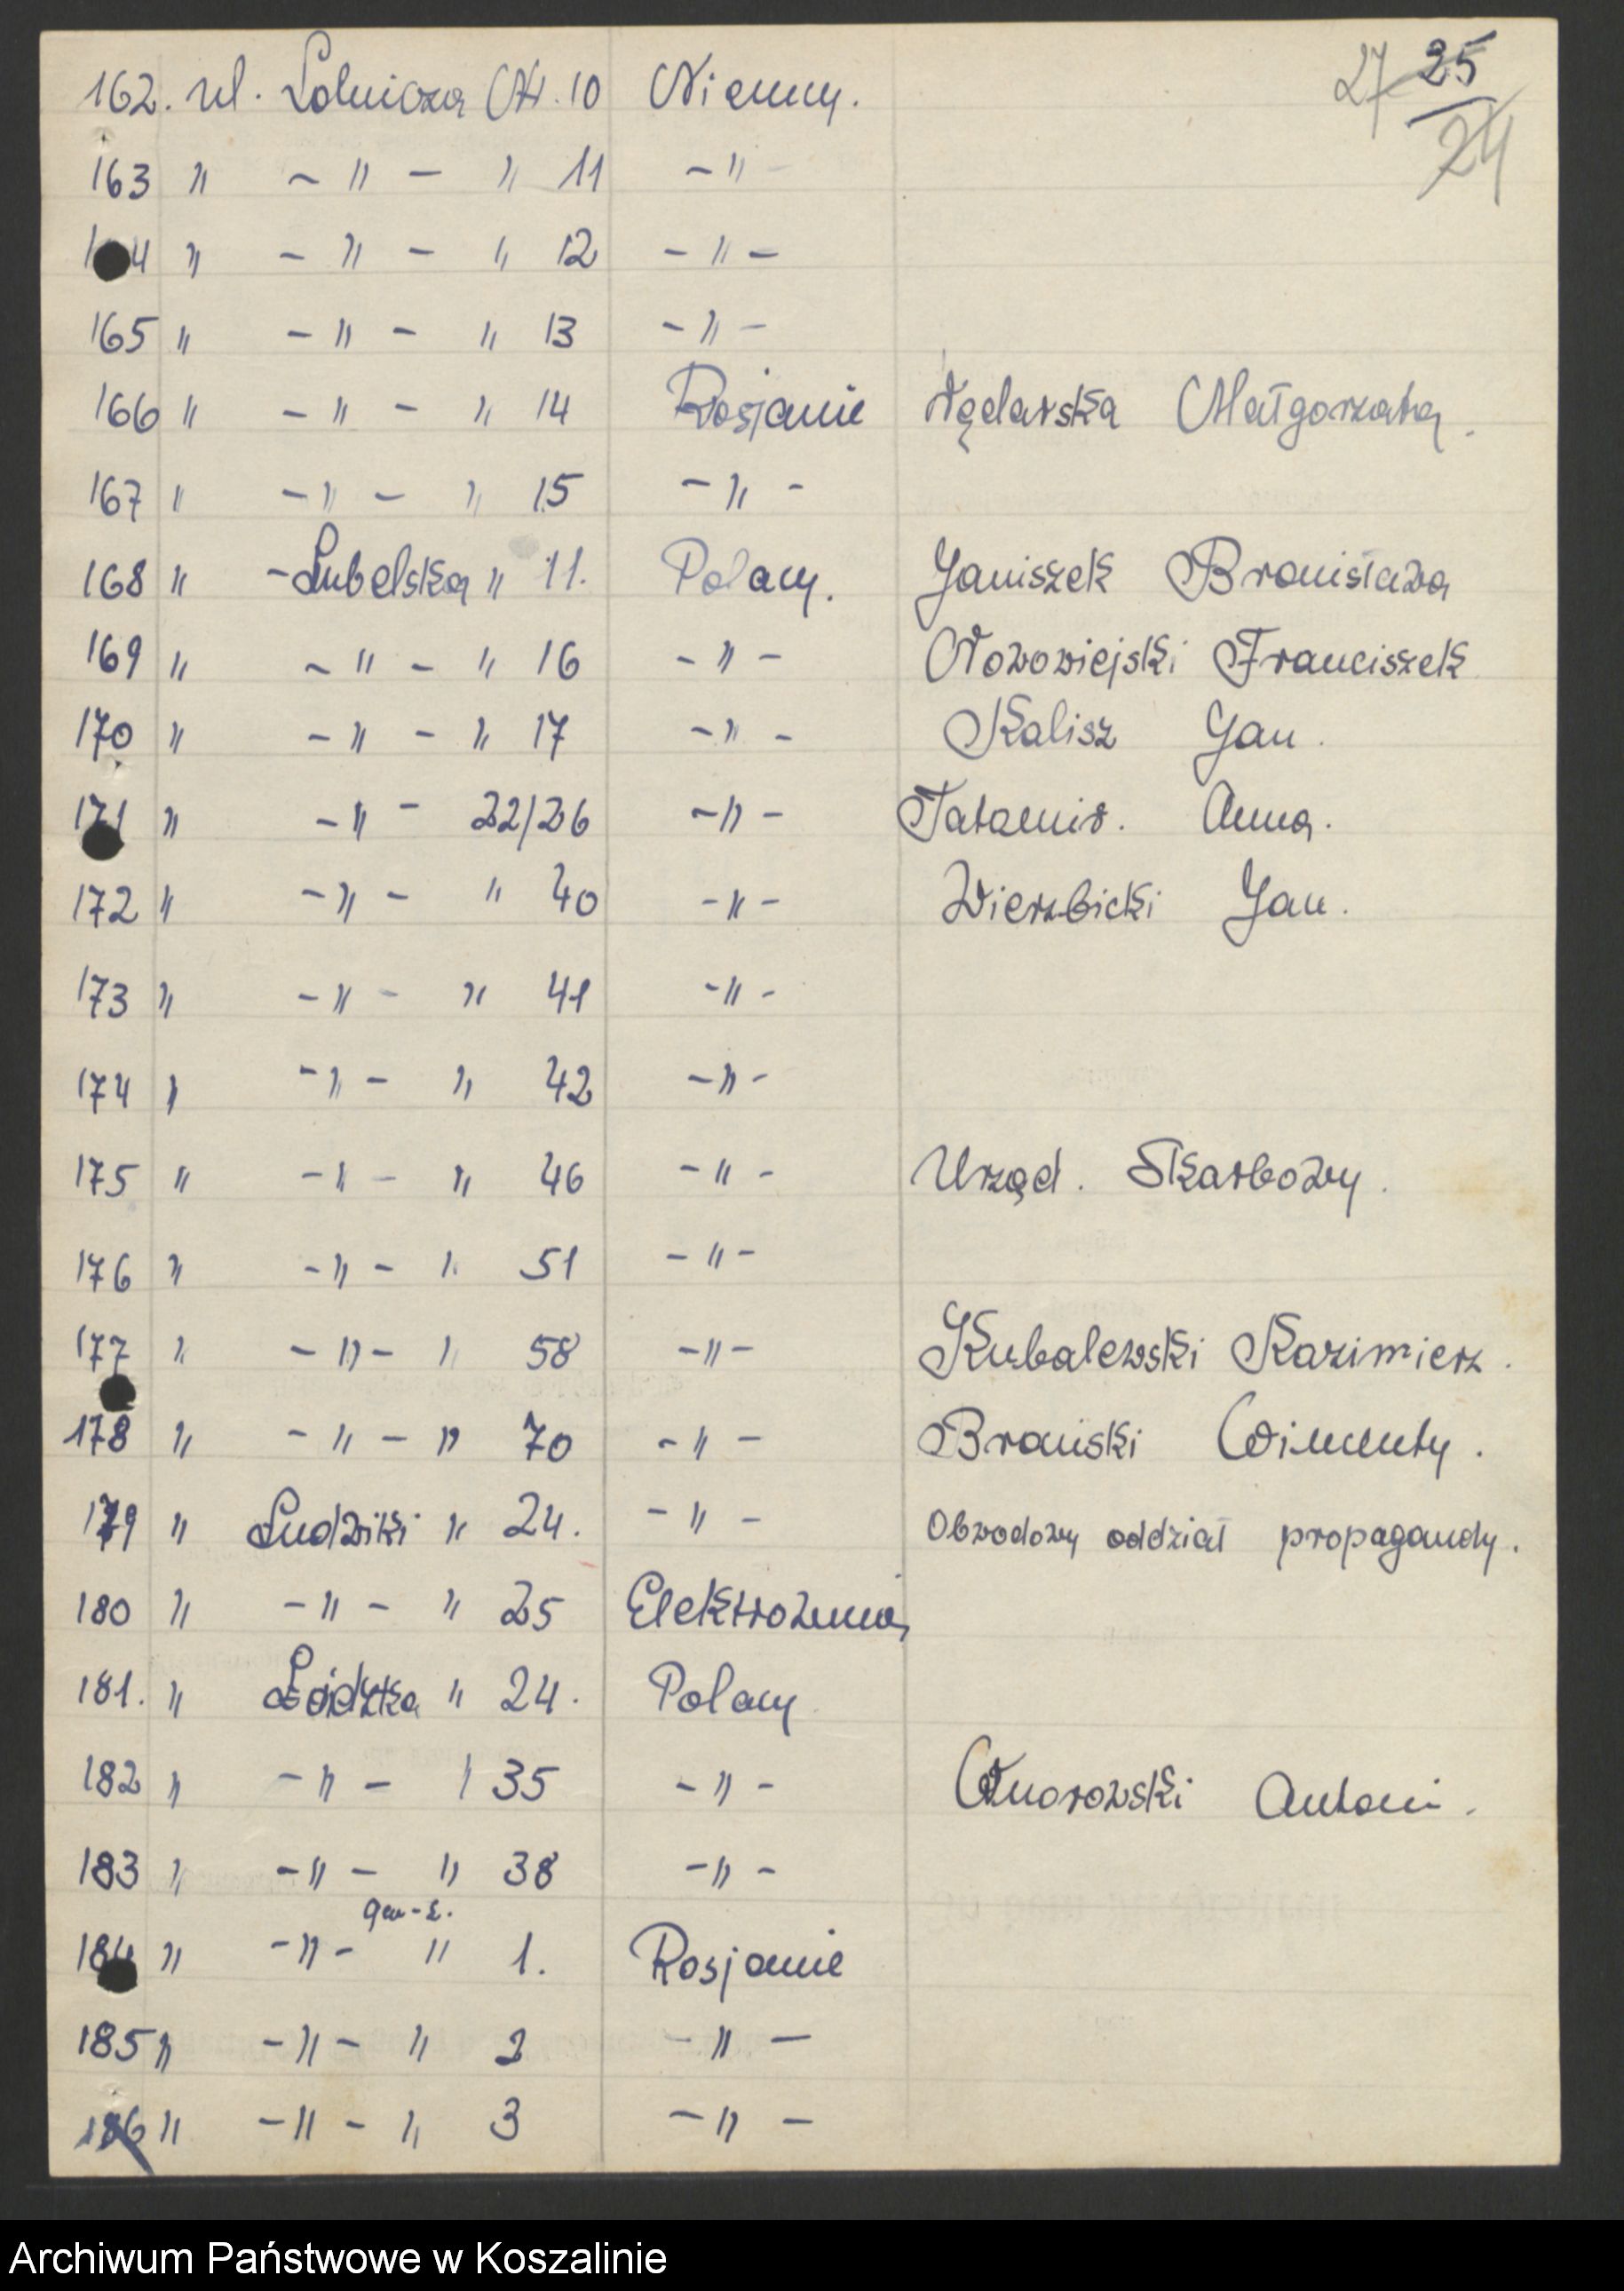 27 25
24
162. ul. Lotnicza Nr. 10 Niemcy.
163 " - " - " 11 - " -
164 " - " - " 12 - " -
165 " - " - " 13 - " -
166 " - " - " 14 Rosjanie Małgorzata.
167 " - " - " 15 - " -
168 " - Lubelska " 11. Polacy. Janiszek Bronisława
169 " - " - " 16 - " - Nowowiejski Franciszek
170 " - " - " 17 - " - Kalisz Jan.
171 " - " - 22/26 - " - Anna.
172 " - " - " 40 - " - Wierzbicki Jan.
173 " - " - " 41 - " -
174 " - " - " 42 - " -
175 " - " - " 46 - " - Urząd. Skarbowy.
176 " - " - " 51 - " -
177 " - " - " 58 - " - Kubalewski Kazimierz.
178 " - " - " 70 - " - Broniski
179 " Ludwiki " 24. - " - Obwodowy oddział propagandy.
180 " - " - " 25 Elektrownia
181. " Łódzka " 24. Polacy
182 " - " - " 35 - " - Wnorowski Antoni.
183 " - " - " 38 - " -
184 " - " - " 1. Rosjanie
185 " - " - " 2 - " -
186 " - " - " 3 - " -
Archiwum Państwowe w Koszalinie